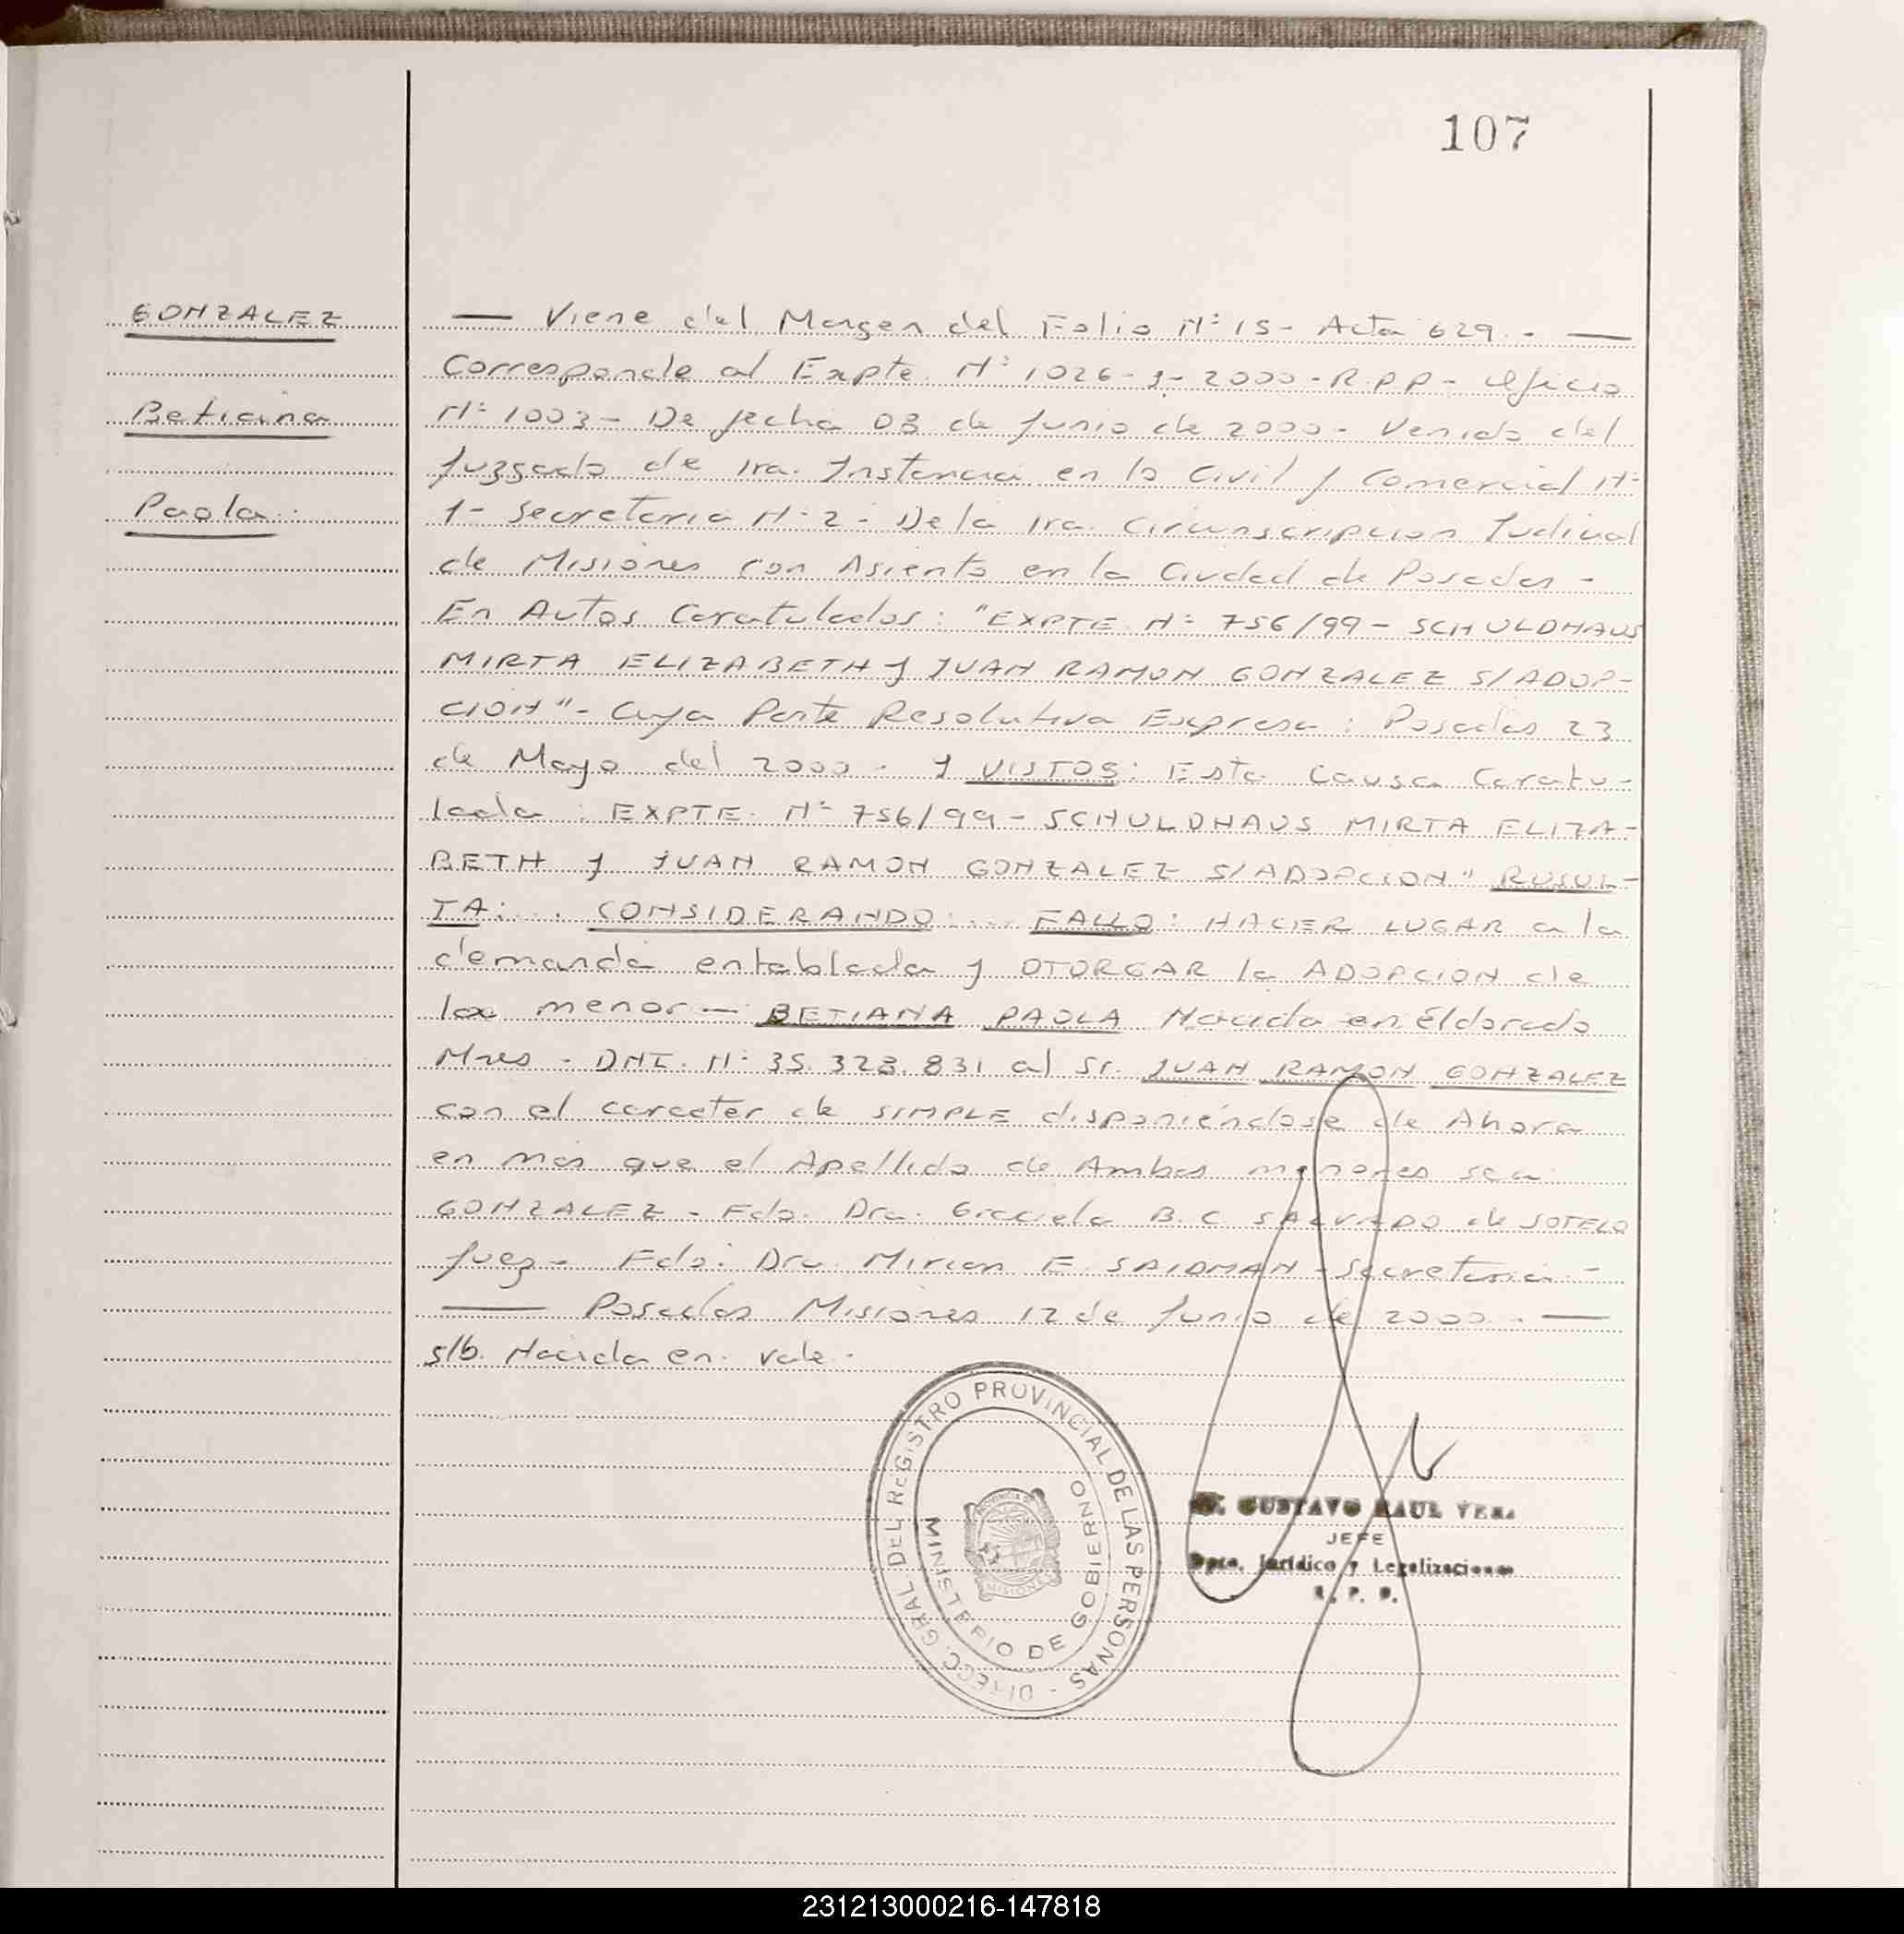 107
GONZALEZ
Betiana
Paola
— Viene del Margen del Folio N° 15 - Acta 629. - —
Corresponde al Expte. N° 1026-9-2000-R.P.P- Oficio
N° 1003- De fecha 08 de Junio de 2000- Venido del
Juzgado de 1ra. Instancia en lo Civil y Comercial N°
1- Secretaria N° 2- De la 1ra. Circunscripcion Judicial
de Misiones con Asiento en la Ciudad de Posadas -
En Autos Caratulados: "EXPTE N° 756/99 - SCHULDHAUS
MIRTA ELIZABETH y JUAN RAMON GONZALEZ S/ADOP-
CION"- Cuya Parte Resolutiva Expresa: Posadas 23
de Mayo del 2000. Y VISTOS: Esta Causa Caratu-
lada: EXPTE. N° 756/99 - SCHULDHAUS MIRTA ELIZA-
BETH y JUAN RAMON GONZALEZ S/ADOPCION" RUSUL-
TA:... CONSIDERANDO:.... FALLO: HACER LUGAR a la
demanda entablada y OTORGAR la ADOPCION de
la menor — BETIANA PAOLA Nacida en Eldorado
Mnes - DNI. N° 35.328.831 al Sr. JUAN RAMON GONZALEZ
con el caracter de SIMPLE disponiéndose de Ahora
en mas que el Apellido de Ambos menores sea
GONZALEZ - Fdo. Dra. Graciela B. C. SALVADO de SOTELO
Juez - Fdo: Dra. Mirian E. SAIDMAN - Secretaria -
— Posadas Misiones 12 de Junio de 2000. —
s/b. Nacida en. vale -
DIRECC. GRAL. DEL REGISTRO PROVINCIAL DE LAS PERSONAS -
MINISTERIO DE GOBIERNO
PROVINCIA DE
MISIONES
GUSTAVO RAUL VERA
JEFE
Dpto. Jurídico y Legalizaciones
R. P. P.
231213000216-147818